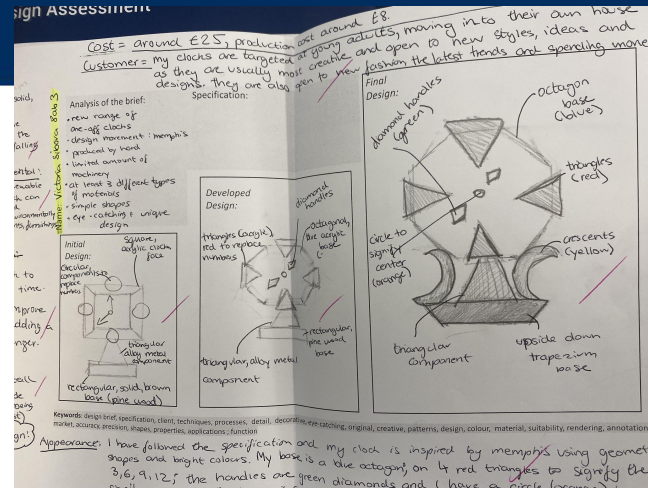 sign Assessment
Cost = around £25, production cost around £8.
Customer = my clocks are targeted at young adults, moving into their own house
as they are usually most creative and open to new styles, ideas and
designs. They are also open to new fashion, the latest trends and spending mone
Name: Victoria
Analysis of the brief:
• new range of
one-off clocks
• design movement: memphis
• produced by hand
• limited amount of
machinery
• at least 3 different types
of materials
• simple shapes
• eye-catching + unique
design
Specification:
Initial
Design:
Square,
acrylic clock
face
Circular,
components
replace
numbers
triangular
alloy metal
component
rectangular, solid, brown
base (pine wood)
Developed
Design:
diamond
handles
triangles (acrylic)
red to replace
numbers
octagonal,
blue acrylic
base
rectangular,
pine wood
base
triangular, alloy metal
component
Final
Design:
diamond handles
(green)
octagon
base
(blue)
triangles
(red)
circle to
signify
center
(orange)
crescents
(yellow)
triangular
component
upside down
trapezium
base
solid,
the
falling
can
to
time.
improve
adding a
nger.
being
Keywords: design brief, specification, client, techniques, processes, detail, decorative, eye-catching, original, creative, patterns, design, colour, material, suitability, rendering, annotation
market, accuracy, precision, shapes, properties, applications, function
Appearance: I have followed the specification and my clock is inspired by memphis using geomet
shapes and bright colours. My base is a blue octagon, on 4 red triangles to signify the
3, 6, 9, 12; the handles are green diamonds and I have a circle